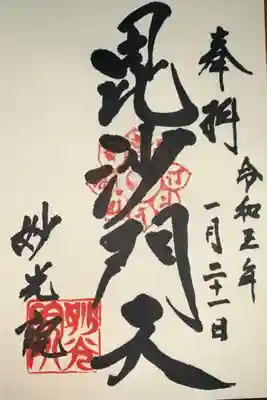 奉拝
令和五年
一月二十一日
毘沙門天
妙光院